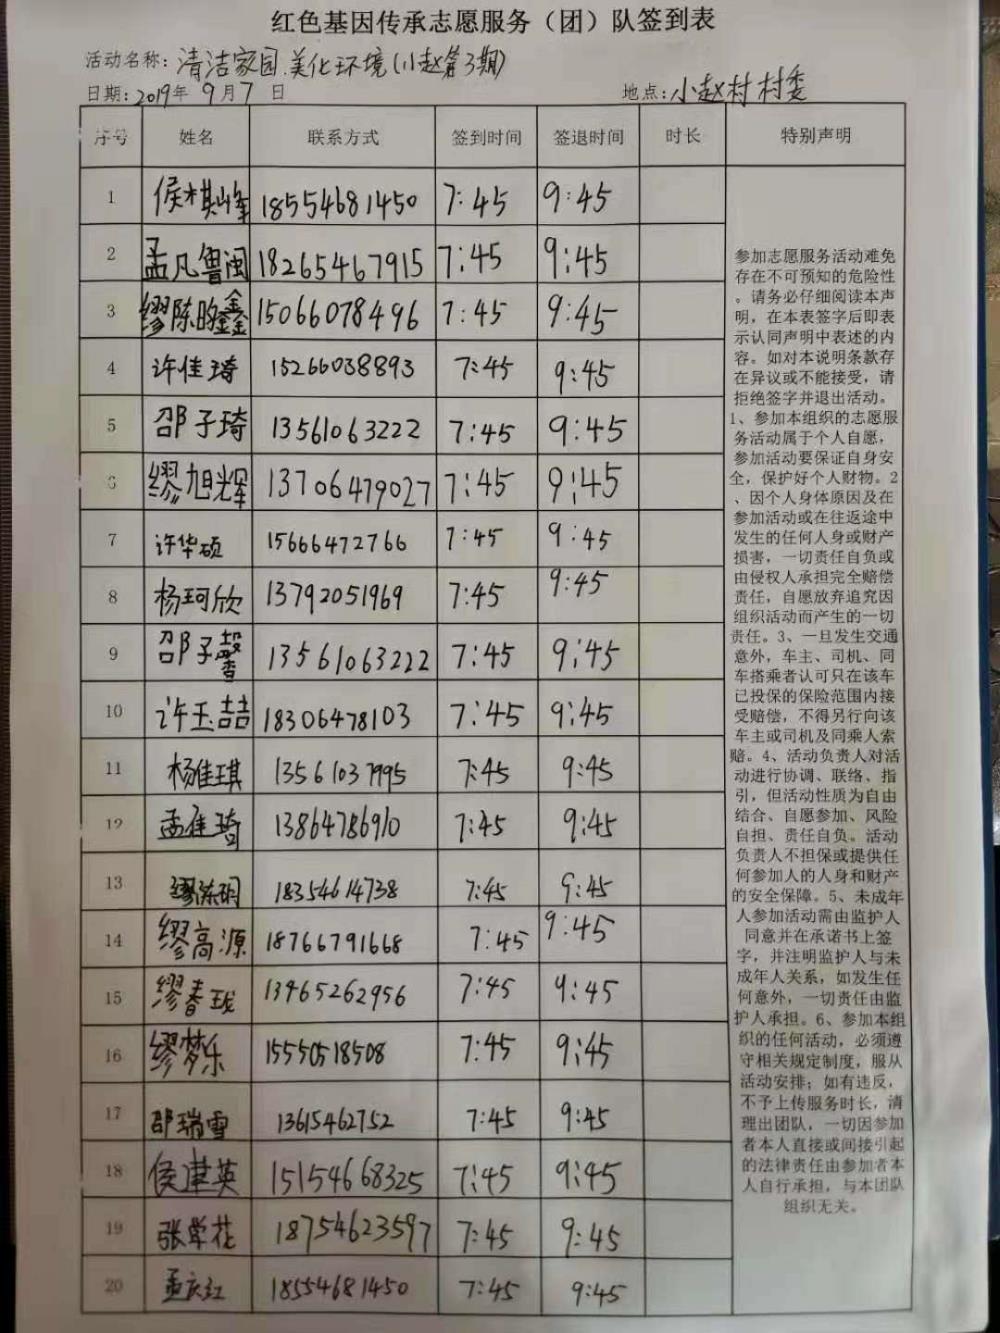 红色基因传承志愿服务（团）队签到表
活动名称：清洁家园.美化环境(小赵第3期)
日期：2019年9月7日 地点：小赵村村委
序号 姓名 联系方式 签到时间 签退时间 时长 特别声明
1 侯棋峰 18554681450 7:45 9:45
2 孟凡鲁闽 18265467915 7:45 9:45
3 缪陈昀鑫 15066078496 7:45 9:45
4 许佳琦 15266038893 7:45 9:45
5 邵子琦 13561063222 7:45 9:45
6 缪旭辉 13706479027 7:45 9:45
7 许华硕 15666472766 7:45 9:45
8 杨珂欣 13792051969 7:45 9:45
9 邵子馨 13561063222 7:45 9:45
10 许玉喆 18306478103 7:45 9:45
11 杨佳琪 13561037995 7:45 9:45
12 孟佳琦 13864786910 7:45 9:45
13 缪陈玥 18354614738 7:45 9:45
14 缪高源 18766791668 7:45 9:45
15 缪春珑 13465262956 7:45 9:45
16 缪梦乐 15550518508 7:45 9:45
17 邵瑞雪 13615462752 7:45 9:45
18 侯建英 15154668325 7:45 9:45
19 张学花 18754623597 7:45 9:45
20 孟庆红 18554681450 7:45 9:45
参加志愿服务活动难免
存在不可预知的危险性
。请务必仔细阅读本声
明，在本表签字后即表
示认同声明中表述的内
容。如对本说明条款存
在异议或不能接受，请
拒绝签字并退出活动。
1、参加本组织的志愿服
务活动属于个人自愿，
参加活动要保证自身安
全，保护好个人财物。2
、因个人身体原因及在
参加活动或在往返途中
发生的任何人身或财产
损害，一切责任自负或
由侵权人承担完全赔偿
责任，自愿放弃追究因
组织活动而产生的一切
责任。3、一旦发生交通
意外，车主、司机、同
车搭乘者认可只在该车
已投保的保险范围内接
受赔偿，不得另行向该
车主或司机及同乘人索
赔。4、活动负责人对活
动进行协调、联络、指
引，但活动性质为自由
结合、自愿参加、风险
自担、责任自负。活动
负责人不担保或提供任
何参加人的人身和财产
的安全保障。5、未成年
人参加活动需由监护人
同意并在承诺书上签
字，并注明监护人与未
成年人关系，如发生任
何意外，一切责任由监
护人承担。6、参加本组
织的任何活动，必须遵
守相关规定制度，服从
活动安排；如有违反，
不予上传服务时长，清
理出团队，一切因参加
者本人直接或间接引起
的法律责任由参加者本
人自行承担，与本团队
组织无关。